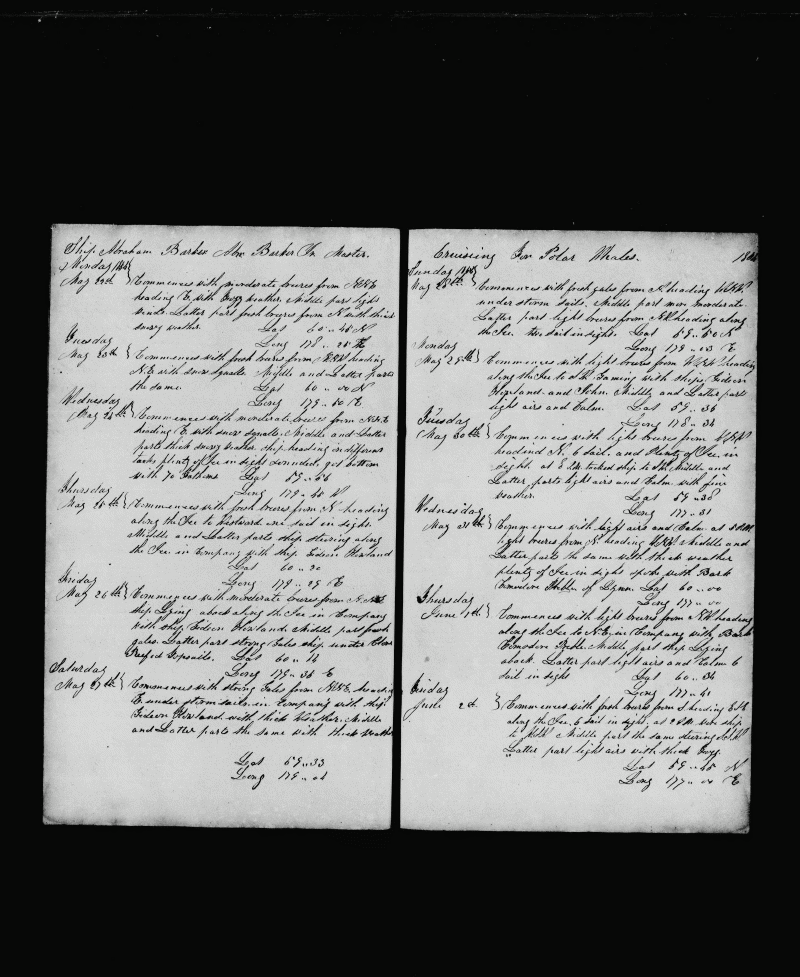 Ship Abraham Barker Abm Barker Jn Master.
Monday 1848
May 22th } Commences with moderate breres from NNE
heading E, with Fogg weather Middle part light
winds. Latter part fresh breres from N with thick
snowy weather. Lat 60 .. 40 N
Tuesday Long 178 .. 25 E
May 23th } Commences with fresh breres from heading
N.E with snow squalls. Middle and Latter parts
the same. Lat 60 .. 00 N
Wednesday Long 179 .. 60 E
May 24th } Commences with moderate breres from N.N.E
heading E with snow squalls. Middle and Latter
parts thick snowy weather. ship heading in different
tacks, plenty of Ice in sight sounded, got bottom
with 70 Fathoms Lat 59 .. 56
Thursday Long 179 .. 40 W
May 25th } Commences with fresh breres from N heading
along the Ice to Westward one sail in sight.
Middle and Latter parts ship steering along
the Ice in Company with ship Gideon Howland
Lat 60 .. 20
Friday Long 179 .. 29 E
May 26th } Commences with moderate breres from
ship Lying aback along the Ice in Company
with ship Gideon Howland. Middle part fresh
gales. Latter part strong Gales ship under Close
Reefed Topsails. Lat 60 .. 14
Saturday Long 179 .. 36 E
May 27th } Commences with strong Gales from NNE, heading
E under storm sails. in Company with ship
Gideon Howland. with thick weather. Middle
and Latter parts the same with thick weather
Lat 59 .. 33
Long 179 .. 04
Cruising For Polar Whales. 1848
Sunday 1848
May 28th } Commences with fresh gales from N heading WNW
under storm sails, Middle part more moderate.
Latter part light breres from NW heading along
the Ice. two sail in sight. Lat 59 .. 50 N
Monday Long 179 .. 03 E
May 29th } Commences with light breres from WNW heading
along the Ice to Gaming with ships Gideon
Howland and John. Middle and Latter parts
light airs and Calm. Lat 59 .. 36
Tuesday Long 178 .. 34
May 30th } Commences with light breres from WNW
headind N. 6 sail. and Plenty of Ice in
sight. at 8 P.M. tacked ship to Middle and
Latter parts light airs and Calm with fine
weather. Lat 59 .. 38
Wednesday Long 177 .. 31
May 31th } Commences with light airs and Calm. at 3 P.M.
light breres from N heading WNW Middle and
Latter parts the same with thick weather
plenty of Ice in sight spoke with Bark
Comodore Preble of Lynn Lat 60 .. 00
Thursday Long 177 .. 00
June 1th } Commences with light breres from NW heading
along the Ice to N.E. in Company with Bark
Comodore Preble. Middle part ship Lying
aback. Latter part light airs and Calm 6
sail in sight Lat 60 .. 34
Friday Long 177 .. 41
June 2d. } Commences with fresh breres from S heading
along the Ice, 6 sail in sight, at 2 P.M. wore ship
to Middle part the same steering
Latter part light airs with thick Fogg.
Lat 59 .. 45 N
Long 177 .. 04 E